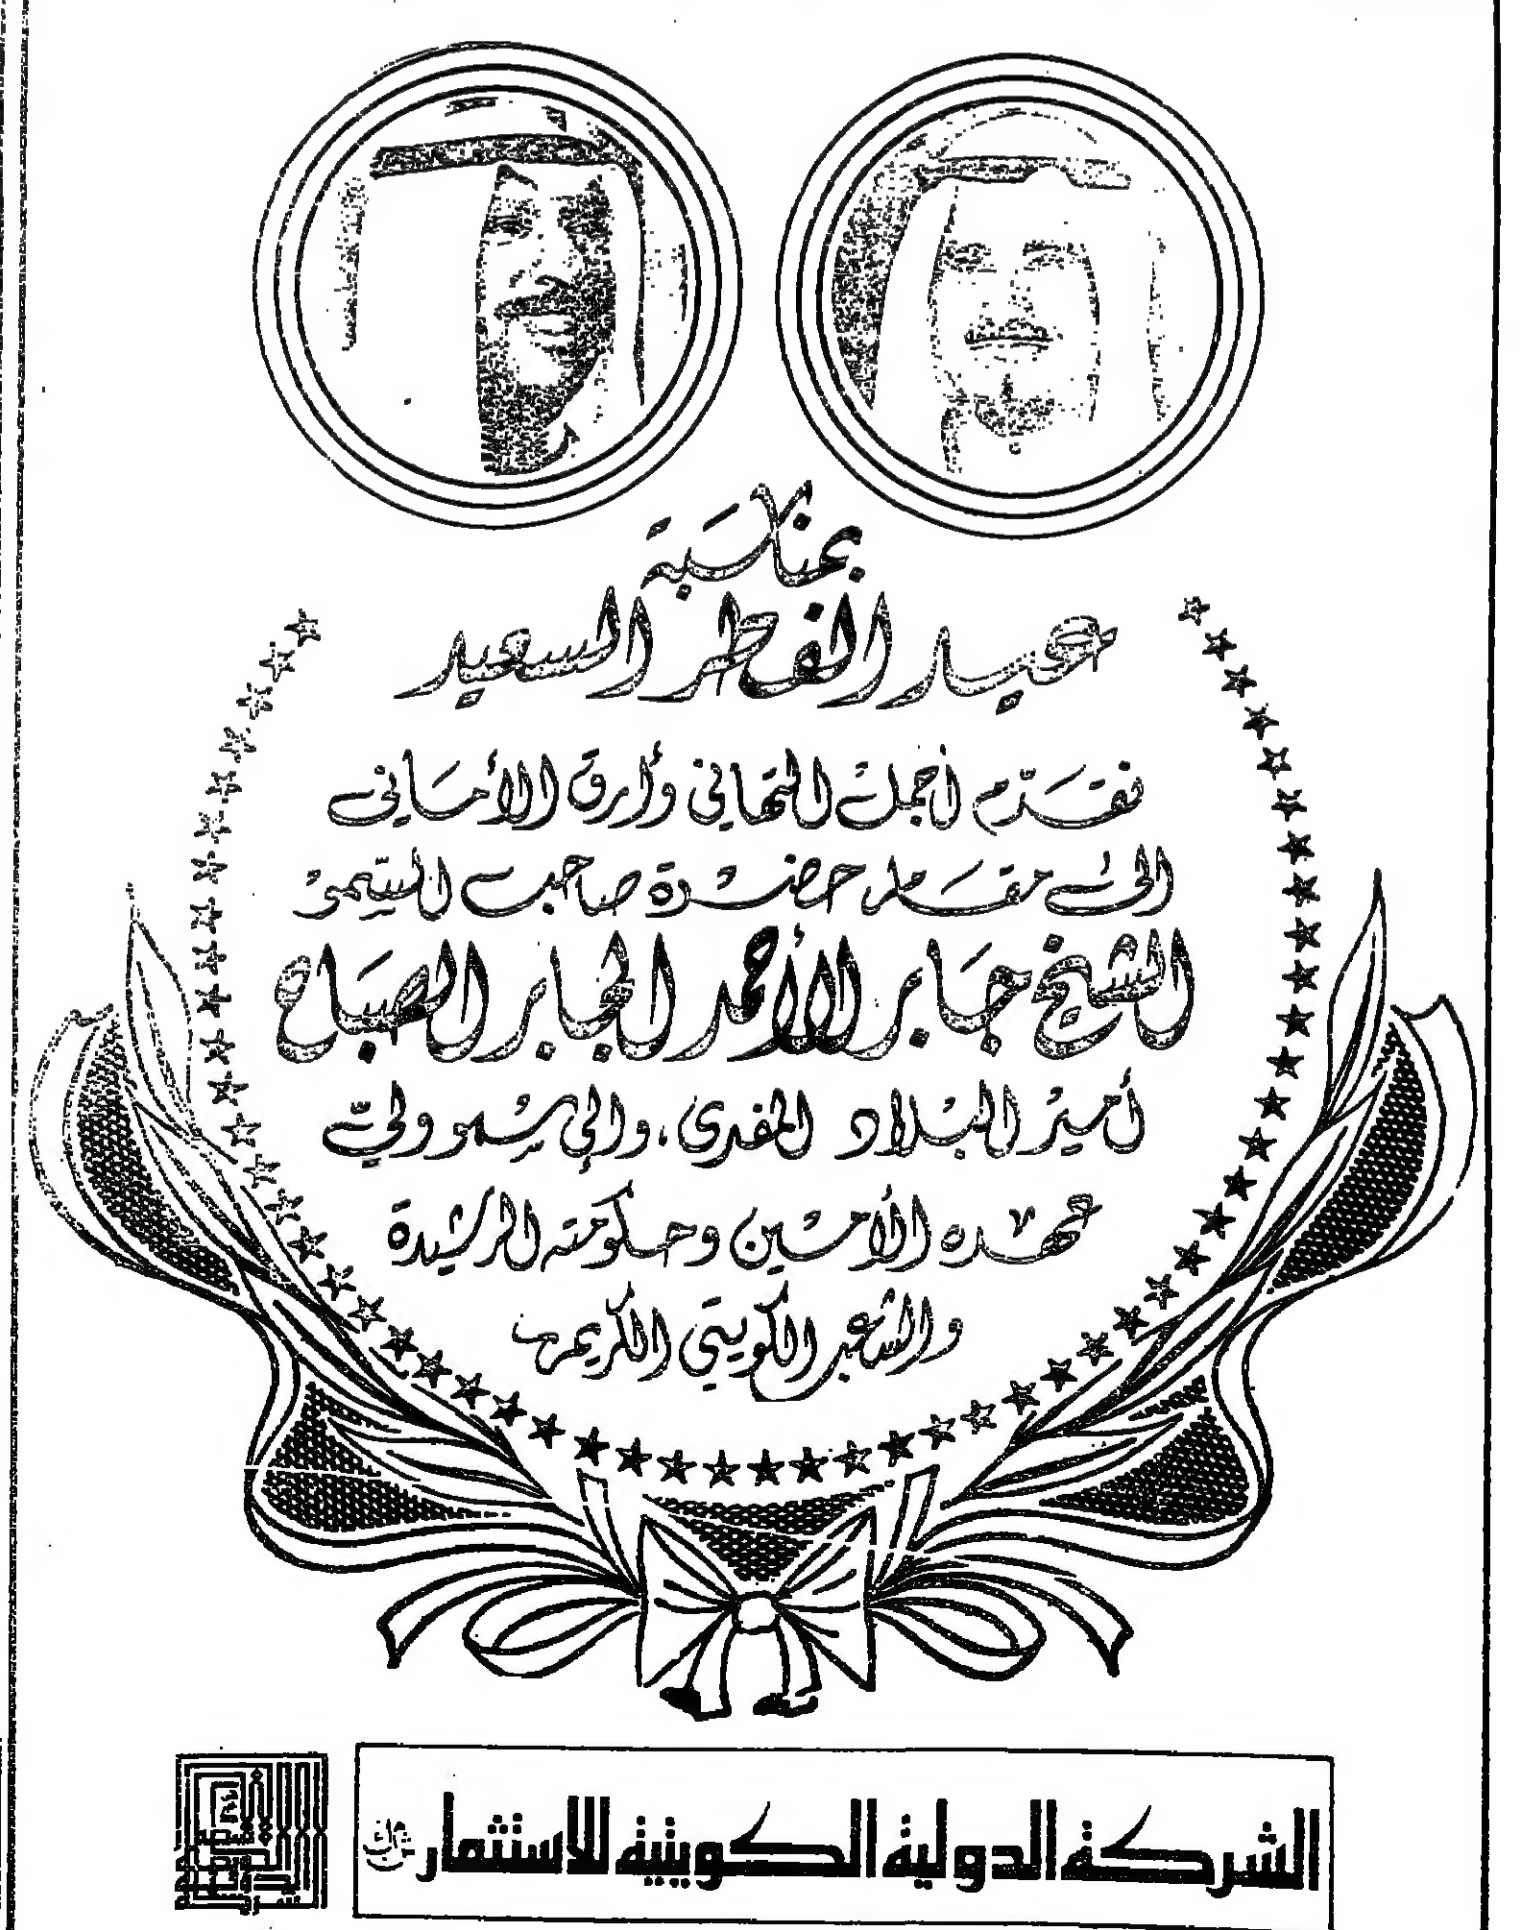 بمناسبة
عيد الفطر السعيد
نقدّم أجمل التهاني وأرق الأماني
إلى مقام حضرة صاحب السّمو
الشيخ جابر الأحمد الجابر الصباح
أمير البلاد المفدى، وإلى سمو وليّ
عهده الأمين وحكومته الرشيدة
والشعب الكويتي الكريم
الشركة الدولية الكويتية للاستثمار ش.م.ك